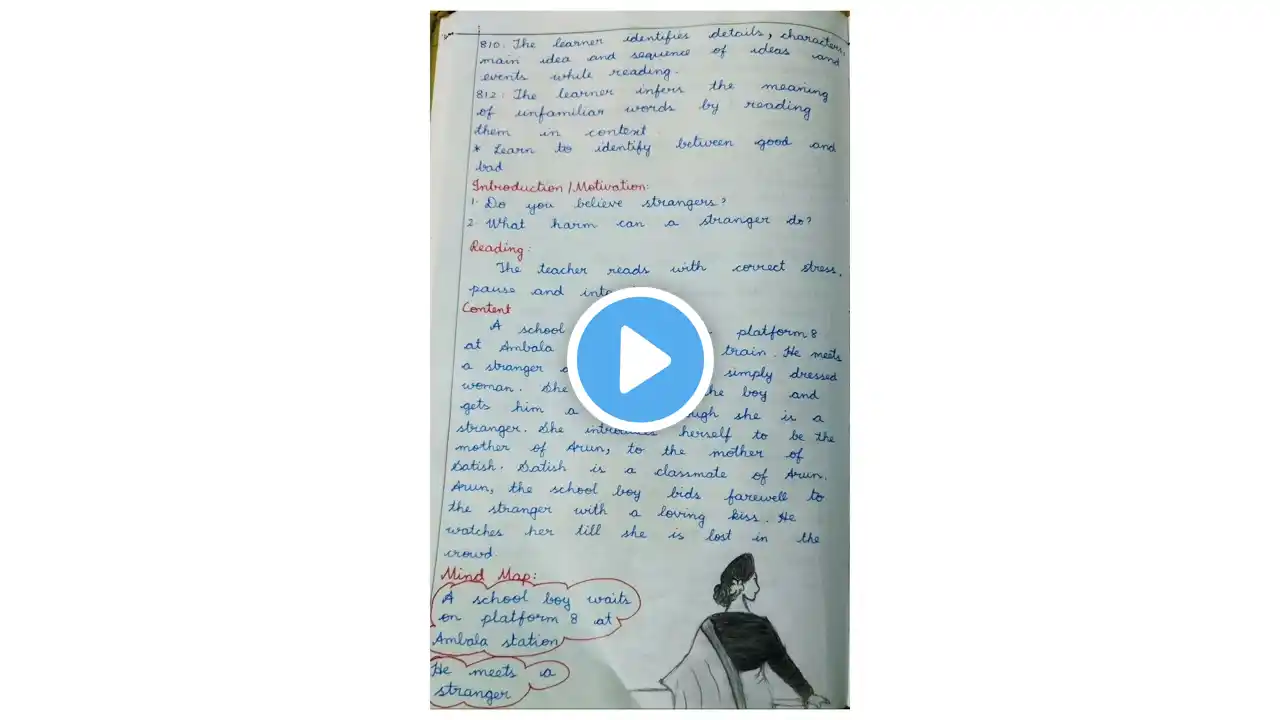 810: The learner identifies details, characters,
main idea and sequence of ideas and
events while reading.
812: The learner infers the meaning
of unfamiliar words by reading
them in context.
* Learn to identify between good and
bad
Introduction / Motivation:
1. Do you believe strangers?
2. What harm can a stranger do?
Reading:
The teacher reads with correct stress,
pause and
Content
A school platform 8
at Ambala train. He meets
a stranger simply dressed
woman. She the boy and
gets him a she is a
stranger. She introduces herself to be the
mother of Arun, to the mother of
Satish. Satish is a classmate of Arun.
Arun, the school boy bids farewell to
the stranger with a loving kiss. He
watches her till she is lost in the
crowd.
Mind Map:
A school boy waits
on platform 8 at
Ambala station
He meets a
stranger